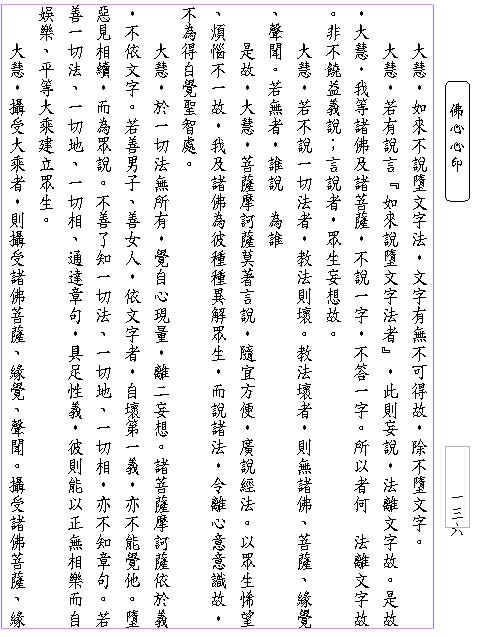 佛心心印
一三六
大慧，如來不說墮文字法，文字有無不可得故，除不墮文字。
大慧，若有說言『如來說墮文字法者』，此則妄說，法離文字故。是故
，大慧，我等諸佛及諸菩薩，不說一字，不答一字。所以者何　法離文字故
。非不饒益義說；言說者，眾生妄想故。
大慧，若不說一切法者，教法則壞。教法壞者，則無諸佛、菩薩、緣覺
、聲聞。若無者，誰說　為誰
是故，大慧，菩薩摩訶薩莫著言說，隨宜方便，廣說經法。以眾生悕望
、煩惱不一故，我及諸佛為彼種種異解眾生，而說諸法，令離心意意識故，
不為得自覺聖智處。
大慧，於一切法無所有，覺自心現量，離二妄想。諸菩薩摩訶薩依於義
，不依文字。若善男子、善女人，依文字者，自壞第一義，亦不能覺他。墮
惡見相續，而為眾說。不善了知一切法、一切地、一切相，亦不知章句。若
善一切法、一切地、一切相、通達章句，具足性義，彼則能以正無相樂而自
娛樂、平等大乘建立眾生。
大慧，攝受大乘者，則攝受諸佛菩薩、緣覺、聲聞。攝受諸佛菩薩、緣